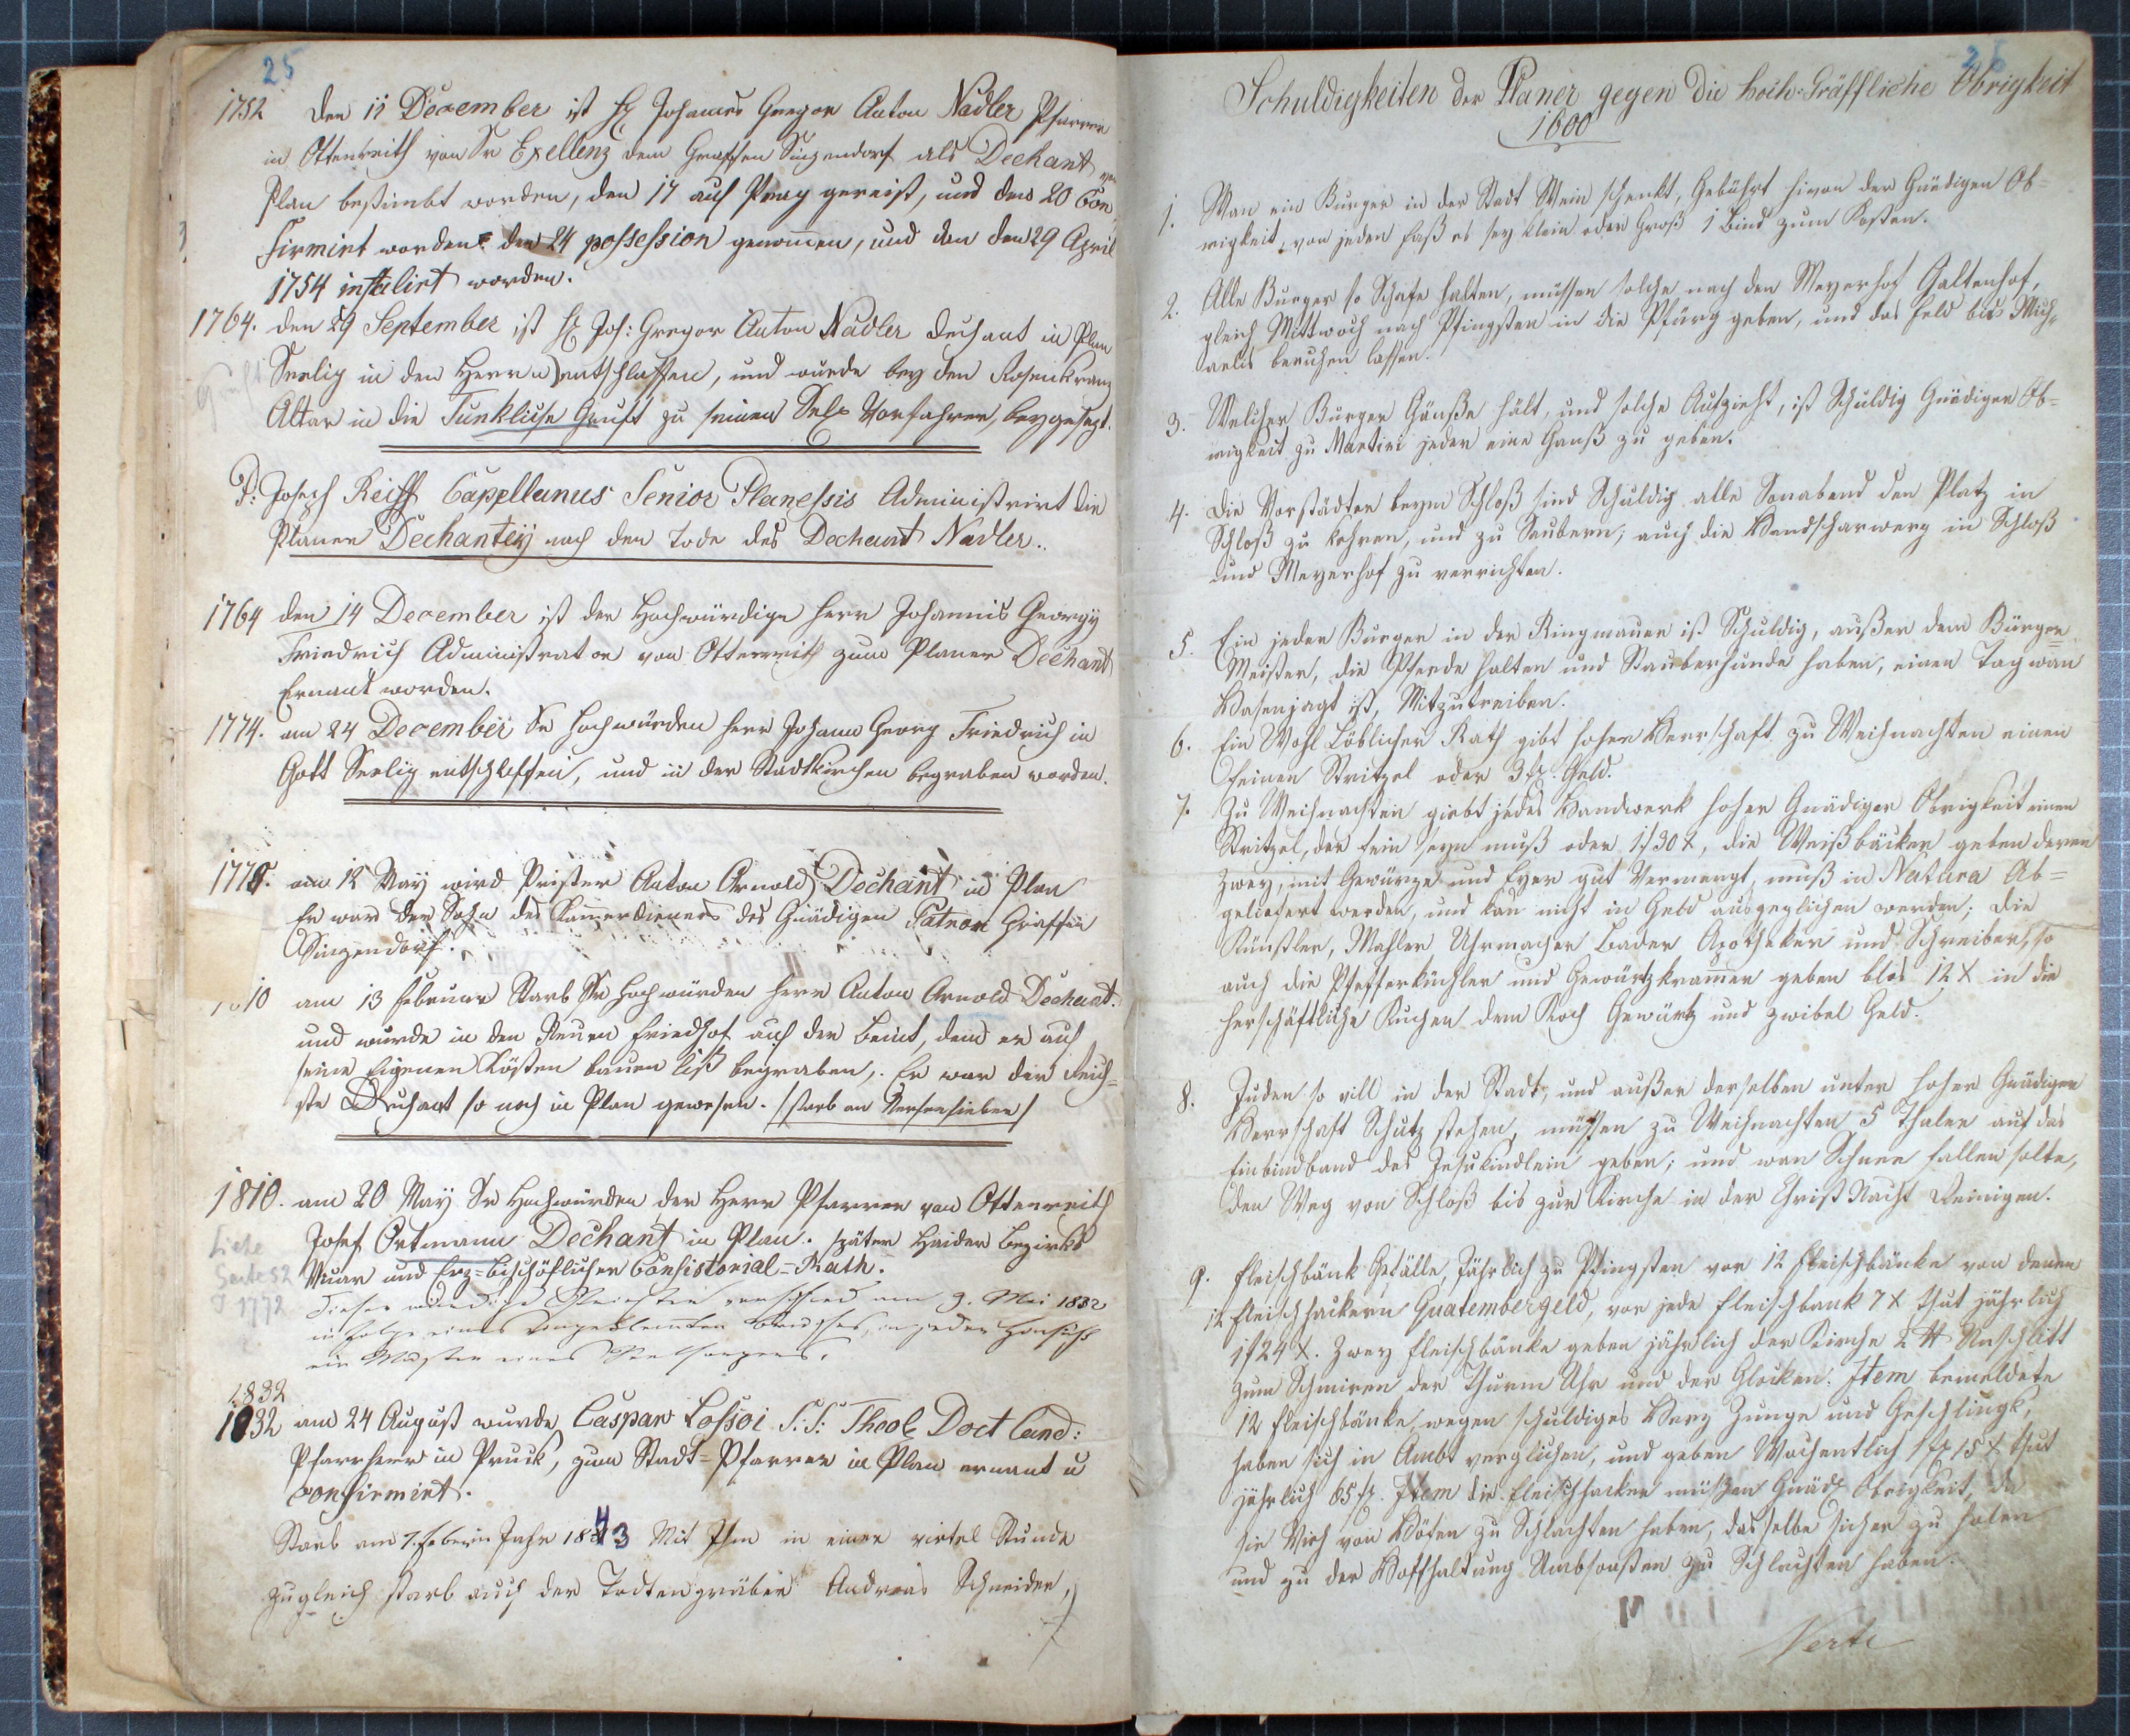 25
1752 den 11 December ist H Johannes Gregor Anton Nadler Pfarrer
in Ottenreith von Sr Exellenz dem Graffen Sinzendorf als Dechant von
Plan bestimbt worden, den 17 auf Prag gereist, und den 20 Con
firmirt worden. den 24 possession genommen, und den den 29 April
1754 installirt worden.
1764. den 29 September ist H Joh: Gregor Anton Nadler Dechant in Plan
Seelig in den Herrn entschlaffen, und wurde bey den Rosenkranz
Gruft
Altar in die Tunklische Gruft zu seinen Sel. Vorfahren beygesezt.
P: Joseph Reiff Capellanus Senior Planessis Administrirt die
Planer Dechantey nach den Tode des Dechant Nadler..
1764 den 14 December ist der Hochwürdige Herr Johannis Georgy
Friedrich Administrator von Ottenreith zum Planer Dechant
Ernant worden.
1774. am 24 December Sr Hochwürden Herr Johann Georg Friedrich in
Gott Seelig entschlaffen, und in der Stadtkirchen begraben worden.
1775. am 12 May wird Prister Anton Arnold Dechant in Plan
Er war der Sohn des Kammerdieners des Gnädigen Patron Graffen
Sinzendorf.
1810 am 13 Februar Starb Sr Hochwürden Herr Anton Arnold Dechant.
und wurde in den Neuen Friedhof auf der Beint, dem er auf
seine Eigenen Kösten bauen liß begraben,. Er war der Reich=
ste Dechant so noch in Plan gewesen. /starb an Nervenfieber/
1810. am 20 May Sr Hochwürden der Herr Pfarrer von Ottenreith
Josef Ortmann Dechant in Plan. später Haider Bezirks
Siehe
Seite 52
J 1772
Vicar und Erz=bischöflicher Consistorial=Rath.
Dieser würdige Priester verschied am 9. Mai 1832
in Folge eines eingeklemten Bruches, in jeder Hinsicht
ein Muster eines Seelsorgers.
1832
1832 am 24 August wurde Caspar Lossoi S.S: Theol. Doct Cand:
Pfarrherr in Pruck, zum Stadt=Pfarrer in Plan ernant u
confirmirt.
Starb am 7. Feber im Jahr 1843 Mit Ihm in einer virtel Stunde
zugleich starb auch der Todtengräber Andreas Schneider,
26
Schuldigkeiten der Planer gegen die hoch=Gräffliche Obrigkeit
1600
1. Wan ein Burger in der Stadt Wein schenkt, Gebührt hivon der Gnädigen Ob=
rigkeit, von jeden Faß es sey klein oder Groß 1 Bind zum Kosten.
2. Alle Burger so Schafe halten, müssen solche nach den Meyerhof Galtenhof,
gleich Mittwoch nach Pfingsten in die Pfürg geben, und das Feld bis Mich=
aelis beruhen lassen.
3. Welcher Burger Gänße hält, und solche Aufzieht, ist Schuldig Gnädiger Ob=
rigkeit zu Martini jeder eine Ganß zu geben.
4. Die Vorstädter beym Schloß sind Schuldig alle Sonabend den Platz in
Schloß zu Kehren, und zu Saubern; auch die Handscharwerg in Schloß
und Meyerhof zu verrichten.
5. Ein jeder Burger in der Ringmauer ist Schuldig, außer dem Bürger
Meister, die Pferde halten und Stauberhunde haben, einen Tag wan
Hasenjagt ist, Mitzutreiben.
6. Ein Wohl Löblicher Rath gibt hoher Herrschaft zu Weihnachten einen
feinen Stritzel oder 3 f. Geld.
7. Zu Weihnachten giebt jedes Handwerk hoher Gnädiger Obrigkeit einen
Stritzel, der fein seyn muß oder 1f 30 x, die Weißbäcker geben deren
Zwey, mit Gewürze und Eyer gut Vermengt, muß in Natura Ab=
geliefert werden, und kan nicht in Geld ausgeglichen werden; die
Künstler, Mahler Uhrmacher Bader Apotheker und Schreiber, so
auch die Pfefferküchler und Gewürtzkramer geben blos 12 x in die
herschäftliche Kuchen dem Koch Gewürtz und Zwibel Geld.
8. Juden so vill in der Stadt, und außer derselben unter hoher Gnädiger
Herrschaft Schutz stehen, müssen zu Weihnachten 5 Thaler auf das
Einbindband des Jesukindlein geben; und wan Schnee fallen solte,
den Weg von Schloß bis zur Kirche in der Christ Nacht Reinigen.
9. Fleischbänk Gefälle, Jährlich zu Pfingsten von 12 Fleischbänke von denen
12 Fleischhackern Quatembergeld, von jede Fleischbank 7 x thut jährlich
1f 24 x. Zwey Fleischbänke geben jährlich der Kirche 2 ℔ Unschlitt
zum Schmiren der Thurm Uhr und der Glocken. Item bemeldete
12 Fleischbänke, wegen schuldiges Herz Zunge und Geschlingk,
haben sich in Ambt verglichen, und geben Wochentlich 1 f 15 x thut
jährlich 65 f. Item die Fleischhacker müssen Gnäd. Obrigkeit, da
sie Vieh von Nöten zu Schlachten haben, dasselbe sicher zu holen
und zu der Hoffhaltung Schlachten haben.
Verte